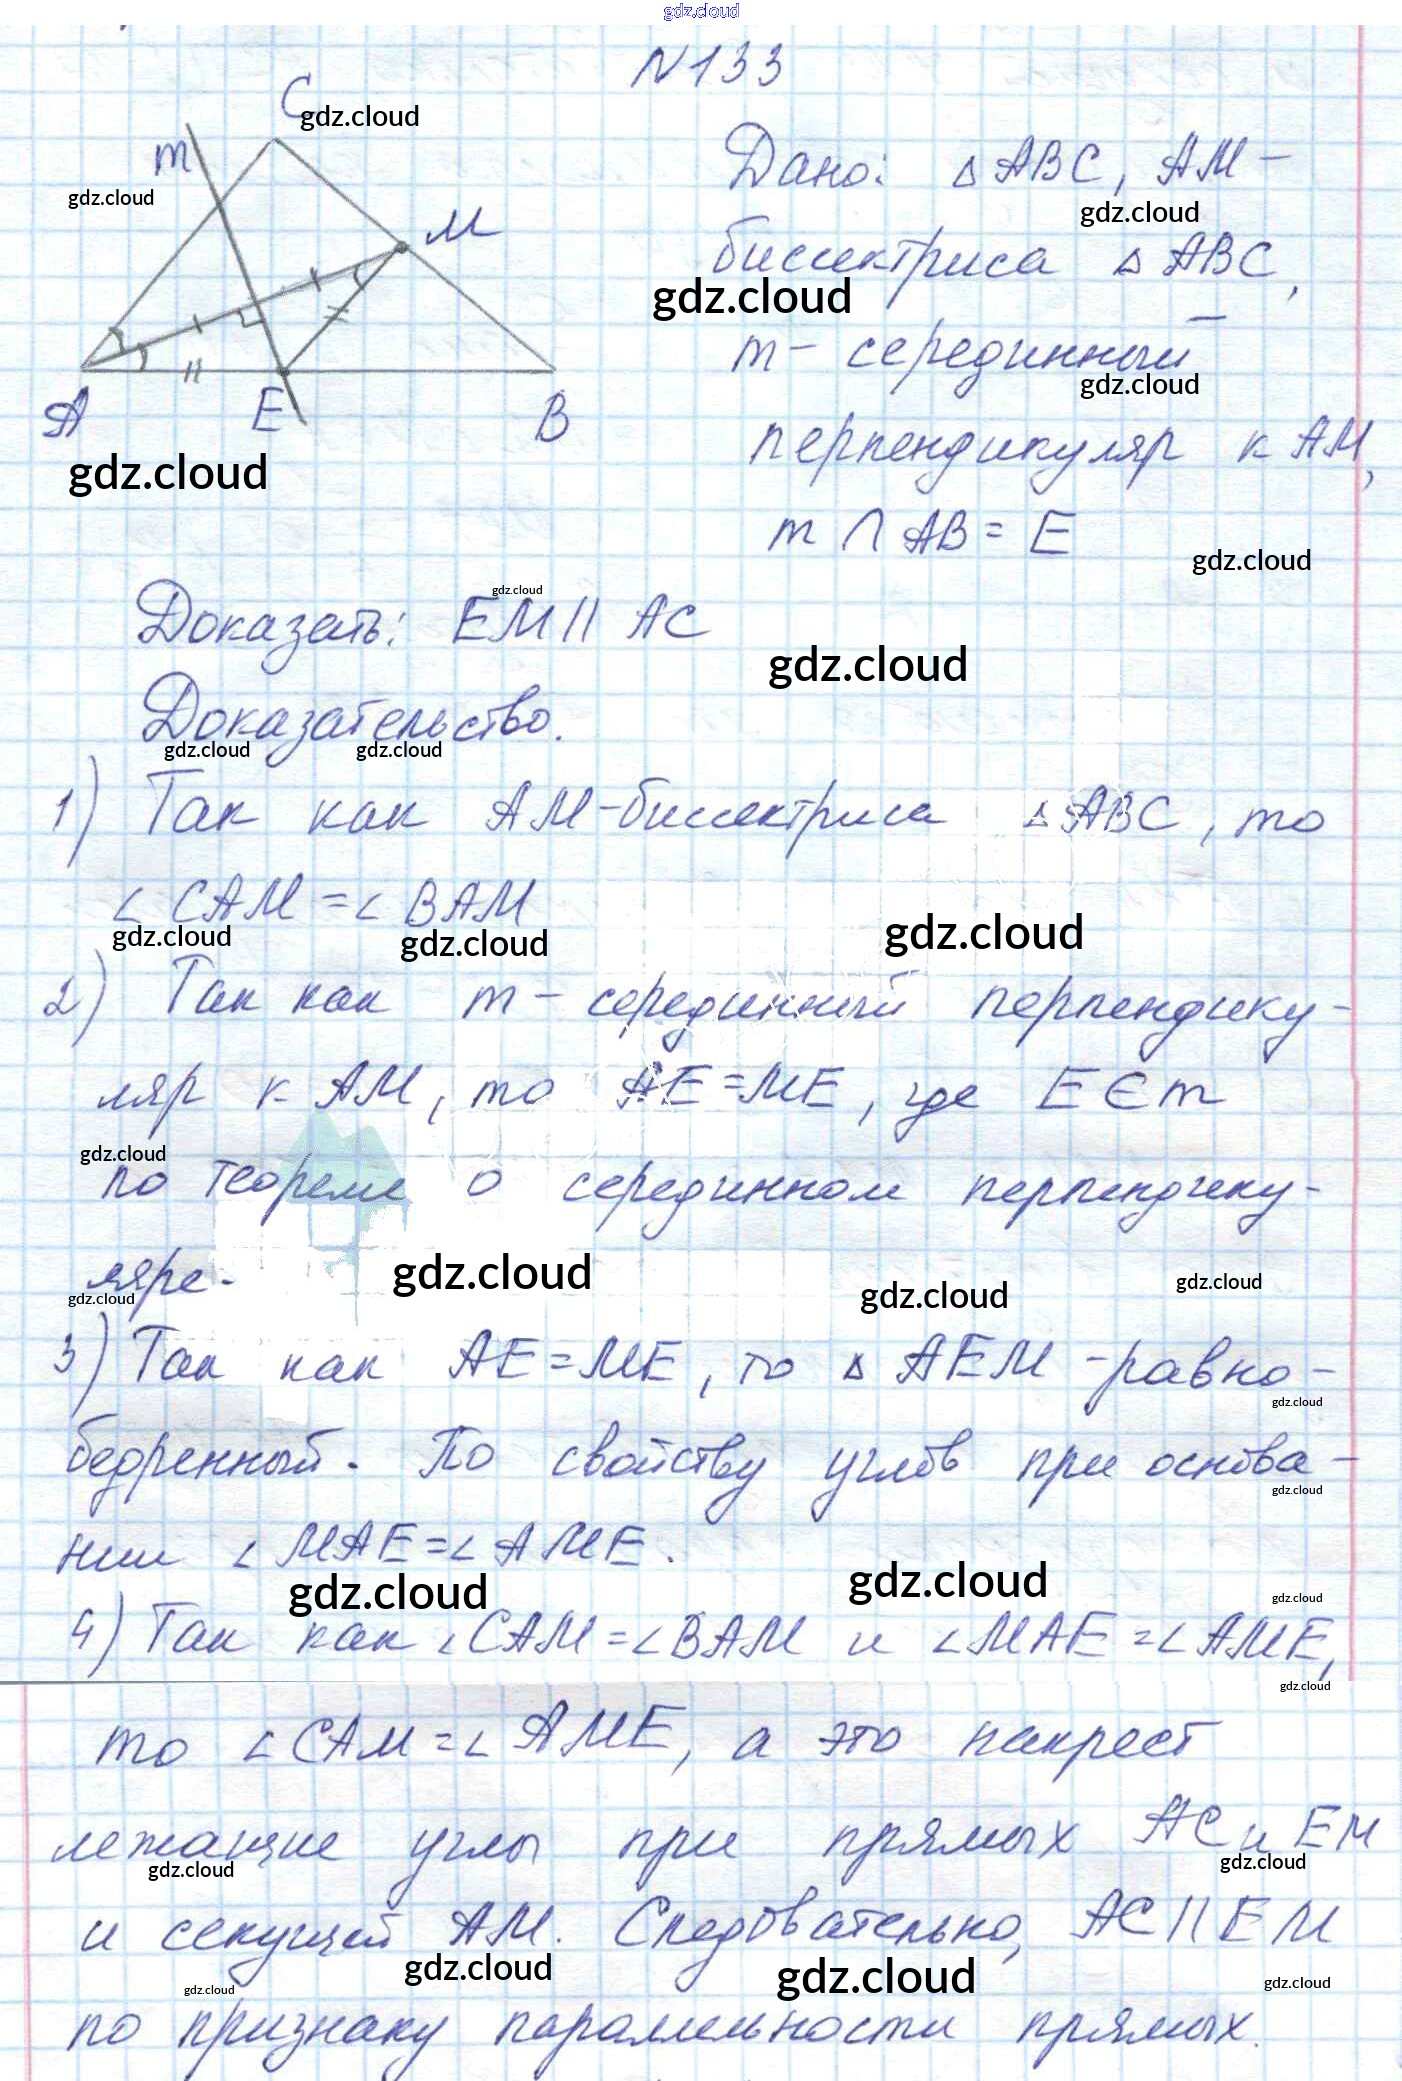 gdz.cloud
№133
C
gdz.cloud
m
gdz.cloud
M
A
E
B
gdz.cloud
Дано: △ABC, AM-
gdz.cloud
биссектриса △ABC,
gdz.cloud
m - серединный
gdz.cloud
перпендикуляр к AM,
m ∩ AB = E
gdz.cloud
gdz.cloud
Доказать: EM || AC
gdz.cloud
Доказательство.
gdz.cloud gdz.cloud
1) Так как AM-биссектриса △ABC, то
∠CAM = ∠BAM
gdz.cloud gdz.cloud gdz.cloud
2) Так как m - серединный перпендику-
ляр к AM, то AE = ME, где E ∈ m
gdz.cloud
по теореме о серединном перпендику-
ляре.
gdz.cloud gdz.cloud gdz.cloud gdz.cloud
3) Так как AE = ME, то △AEM - равно-
gdz.cloud
бедренный. По свойству углов при основа-
gdz.cloud
нии ∠MAE = ∠AME.
gdz.cloud gdz.cloud gdz.cloud
4) Так как ∠CAM = ∠BAM и ∠MAE = ∠AME,
gdz.cloud
то ∠CAM = ∠AME, а это накрест
лежащие углы при прямых AC и EM
gdz.cloud gdz.cloud
и секущей AM. Следовательно, AC || EM
gdz.cloud gdz.cloud gdz.cloud gdz.cloud
по признаку параллельности прямых.